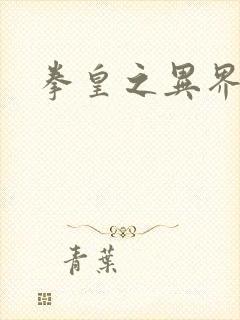 拳皇之異界
青葉